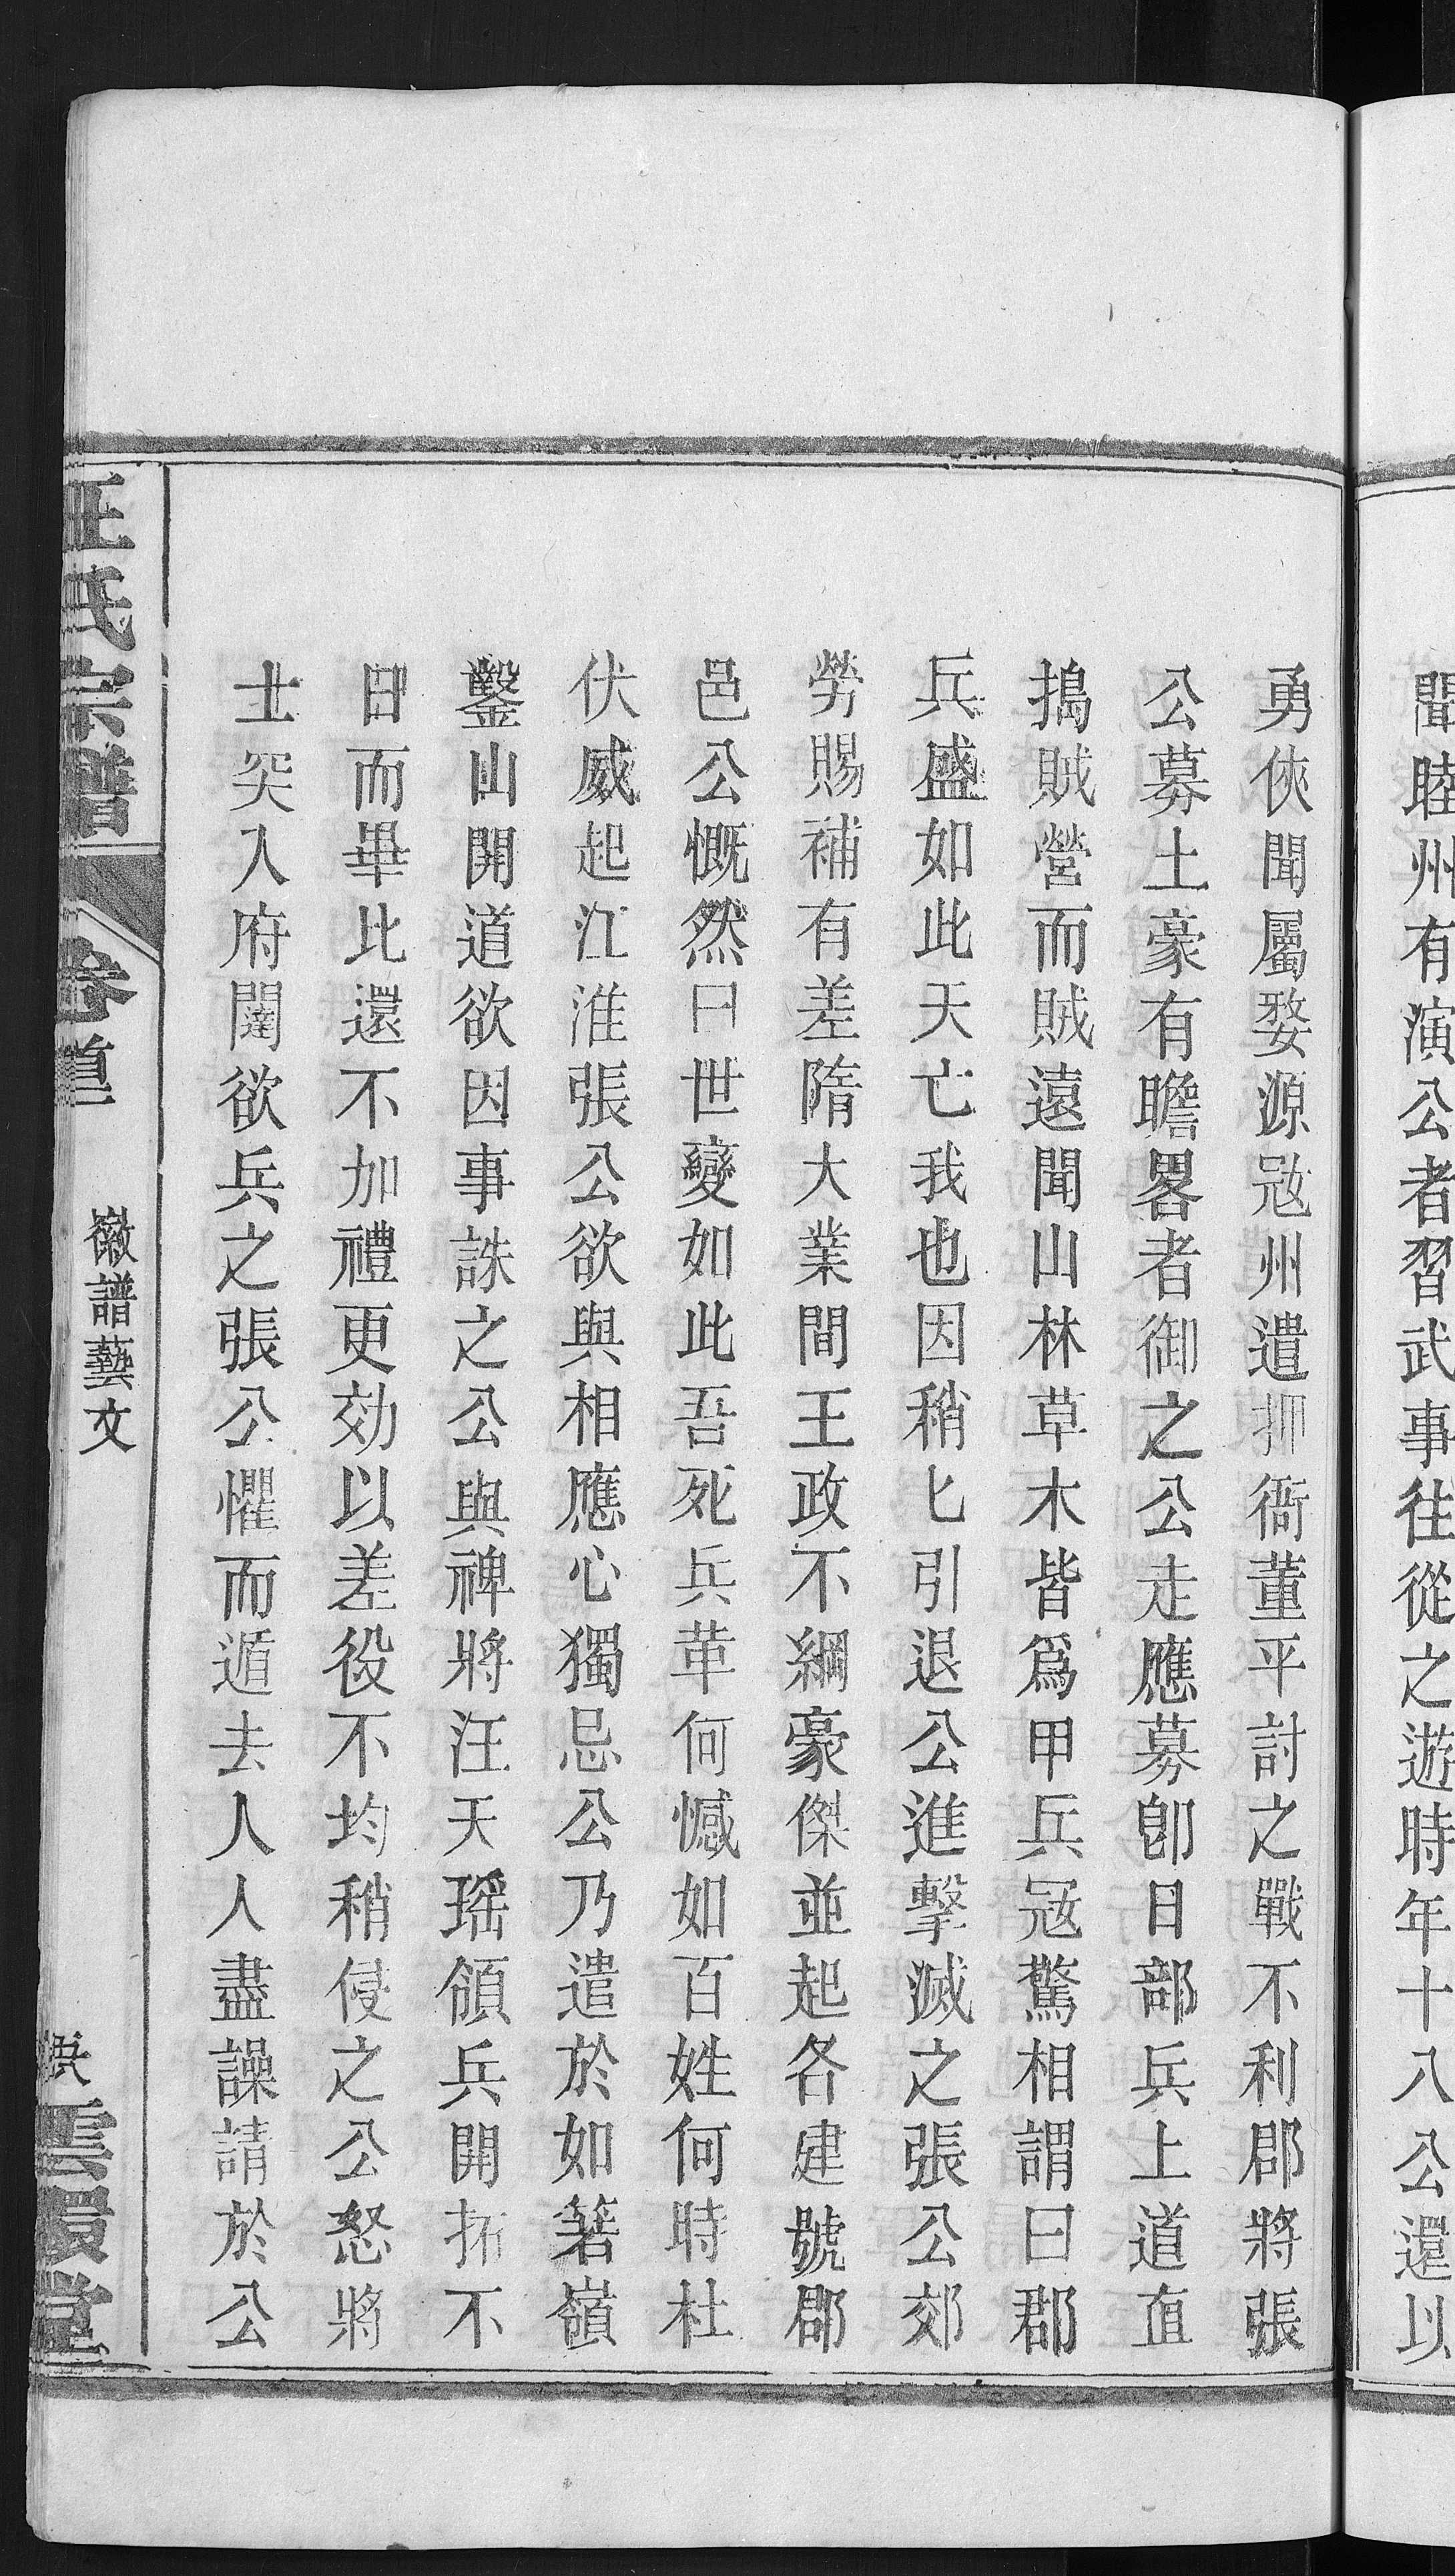 聞睦州有演公者習武事往從之遊時年十八公還以
勇俠聞屬婺源冦州遣押衙董平討之戰不利郡將張
公募土豪有瞻畧者御之公走應募卽日部兵上道直
搗賊營而賊遠聞山林草木皆爲甲兵冦驚相謂曰郡
兵盛如此天亡我也因稍匕引退公進擊滅之張公郊
勞賜補有差隋大業間王政不綱豪傑並起各建號郡
邑公慨然曰世變如此吾死兵革何憾如百姓何時杜
伏威起江淮張公欲與相應心獨忌公乃遣於如箬嶺
鑿山開道欲因事誅之公與裨將汪天瑶領兵開拓不
日而畢比還不加禮更効以差役不均稍侵之公怒將
士突入府闥欲兵之張公懼而遁去人人盡譟請於公
汪氏宗譜 卷首 徽譜藝文 雲㻒堂